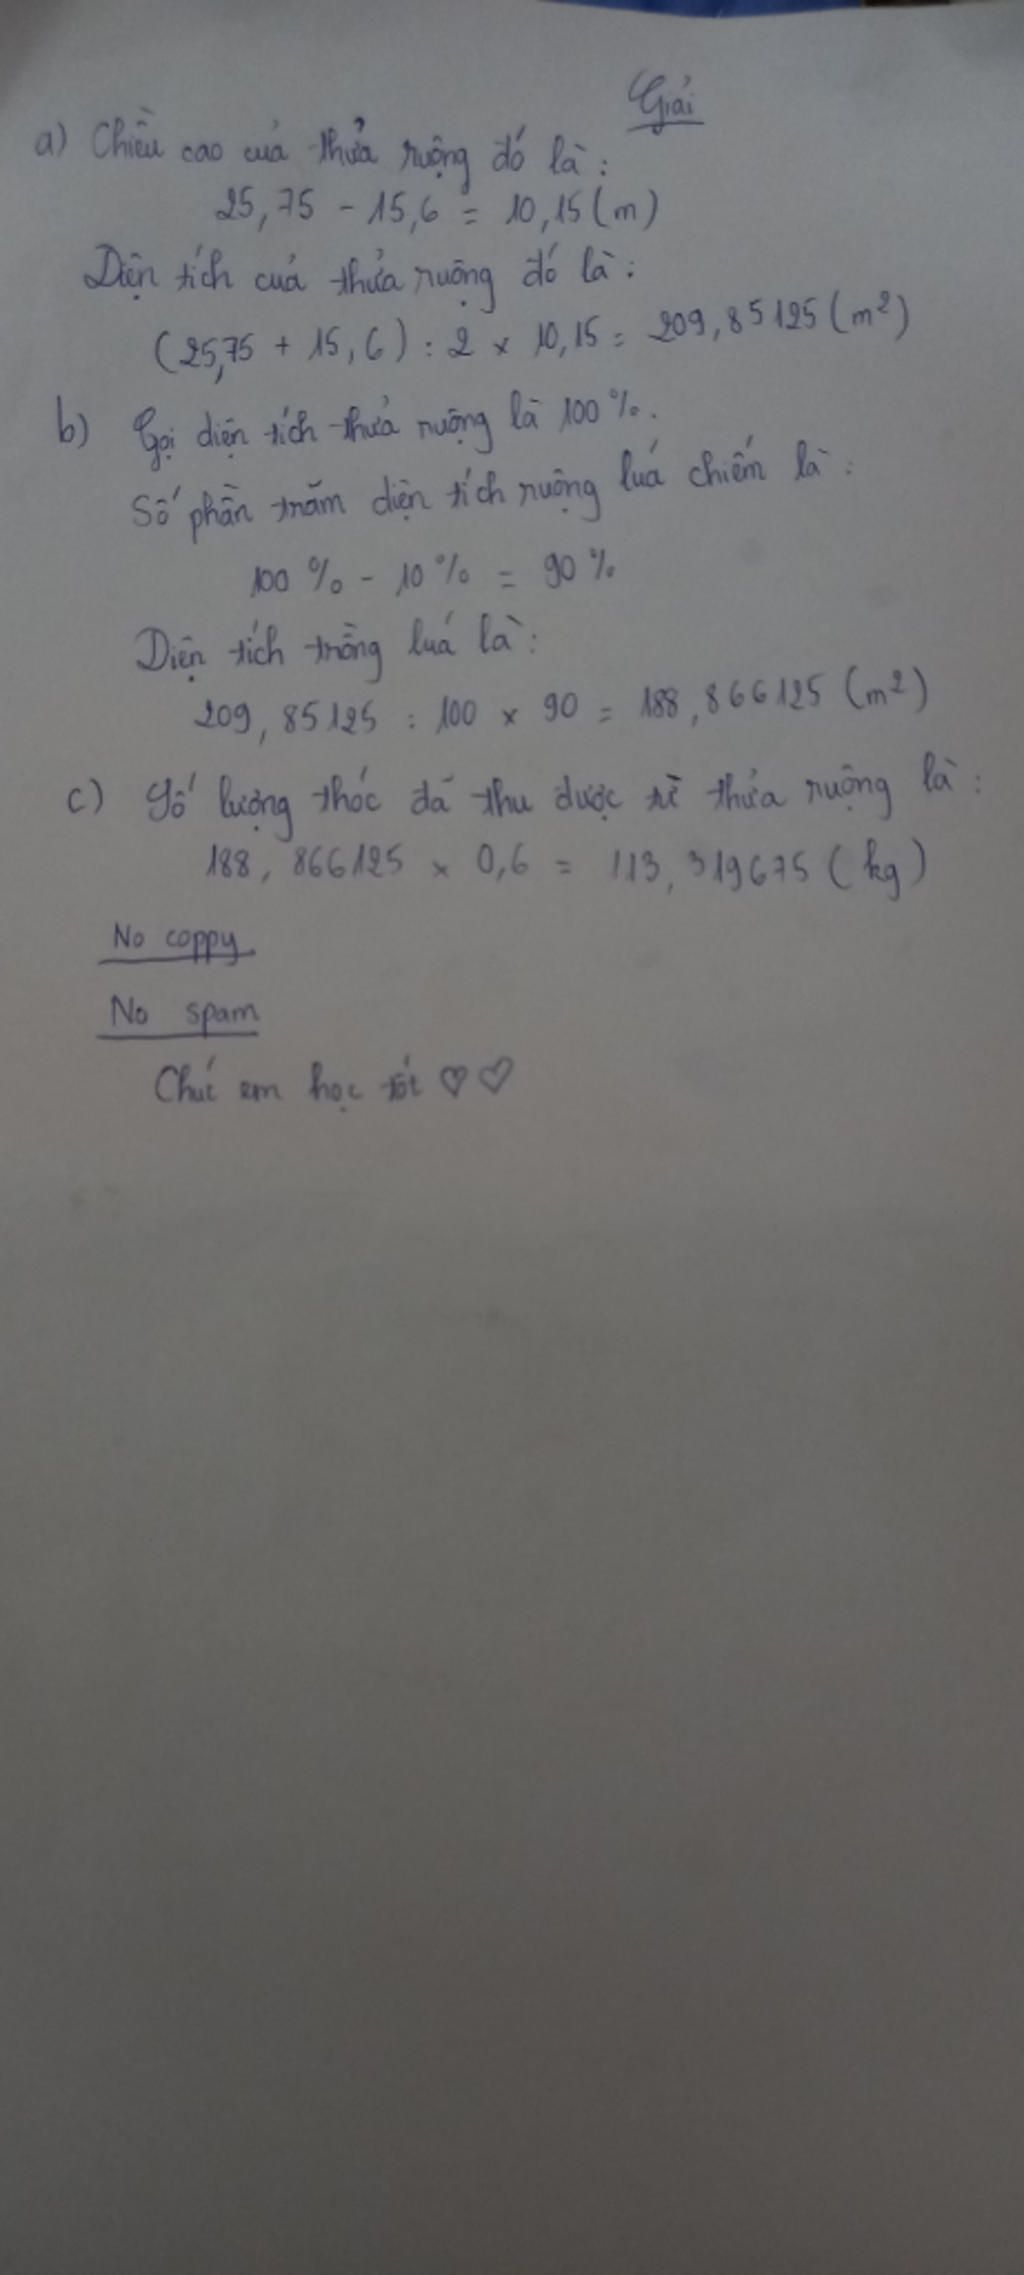 Giải
a) Chiều cao của thửa ruộng đó là:
25,75 - 15,6 = 10,15 (m)
Diện tích của thửa ruộng đó là:
(25,75 + 15,6) : 2 × 10,15 = 209,85125 (m²)
b) Gọi diện tích thửa ruộng là 100%.
Số phần trăm diện tích ruộng luá chiếm là:
100% - 10% = 90%
Diện tích trồng luá là:
209,85125 : 100 × 90 = 188,866125 (m²)
c) Số lượng thóc đã thu được từ thửa ruộng là:
188,866125 × 0,6 = 113,319675 (kg)
No coppy
No spam
Chúc em học tốt ♡♡